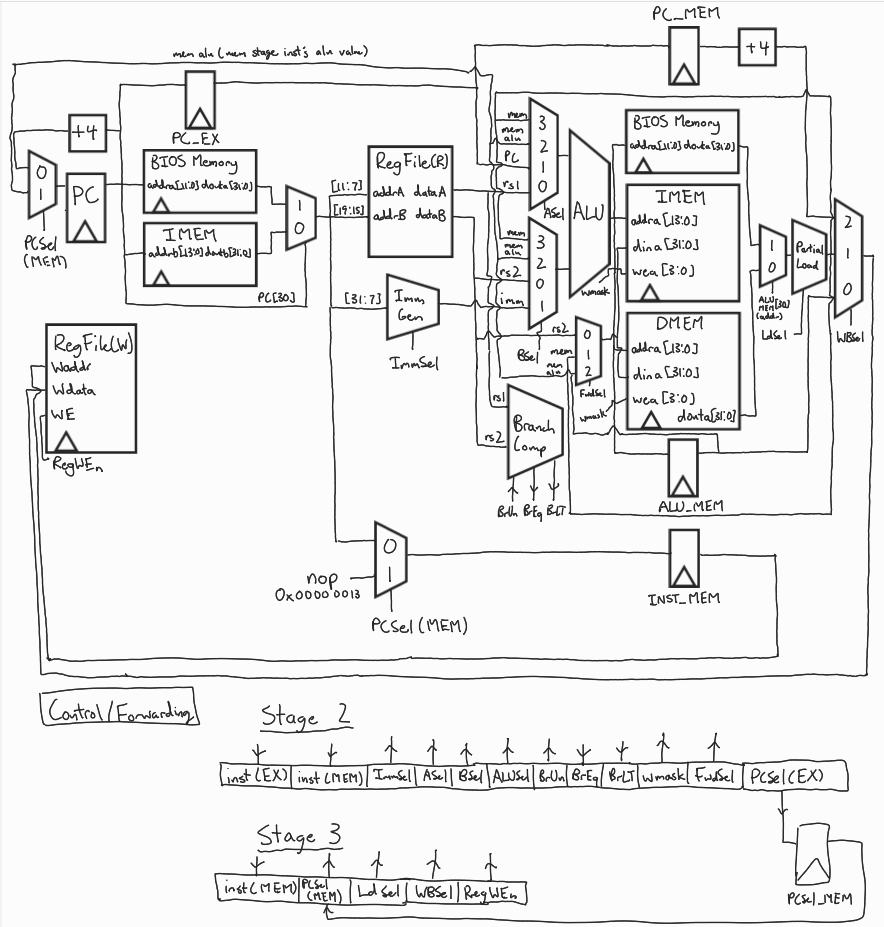 PC_MEM
+4
mem alu (mem stage inst's alu value)
PC_EX
+4
0
1
PC
PCSel
(MEM)
BIOS Memory
addra[11:0] douta[31:0]
IMEM
addrb[13:0] doutb[31:0]
1
0
PC[30]
[11:7]
[19:15]
RegFile(R)
addrA dataA
addrB dataB
[31:7]
Imm
Gen
ImmSel
mem
mem
alu
PC
rs1
3
2
1
0
ASel
mem
mem
alu
rs2
imm
3
2
0
1
BSel
ALU
rs2
mem
mem
alu
0
1
2
FwdSel
rs1
rs2
Branch
Comp
BrUn BrEq BrLT
BIOS Memory
addra[11:0] douta[31:0]
IMEM
addra [13:0]
dina [31:0]
wea [3:0]
wmask
DMEM
addra [13:0]
dina [31:0]
wea [3:0]
douta[31:0]
wmask
1
0
ALU
MEM[30]
(addr)
Partial
Load
LdSel
2
1
0
WBSel
ALU_MEM
RegFile(W)
Waddr
Wdata
WE
RegWEn
0
1
nop
0x00000013
PCSel (MEM)
INST_MEM
Control/Forwarding
Stage 2
inst(EX) inst(MEM) ImmSel ASel BSel ALUSel BrUn BrEq BrLT wmask FwdSel PCSel(EX)
Stage 3
inst(MEM) PCSel (MEM) LdSel WBSel RegWEn
PCSel_MEM